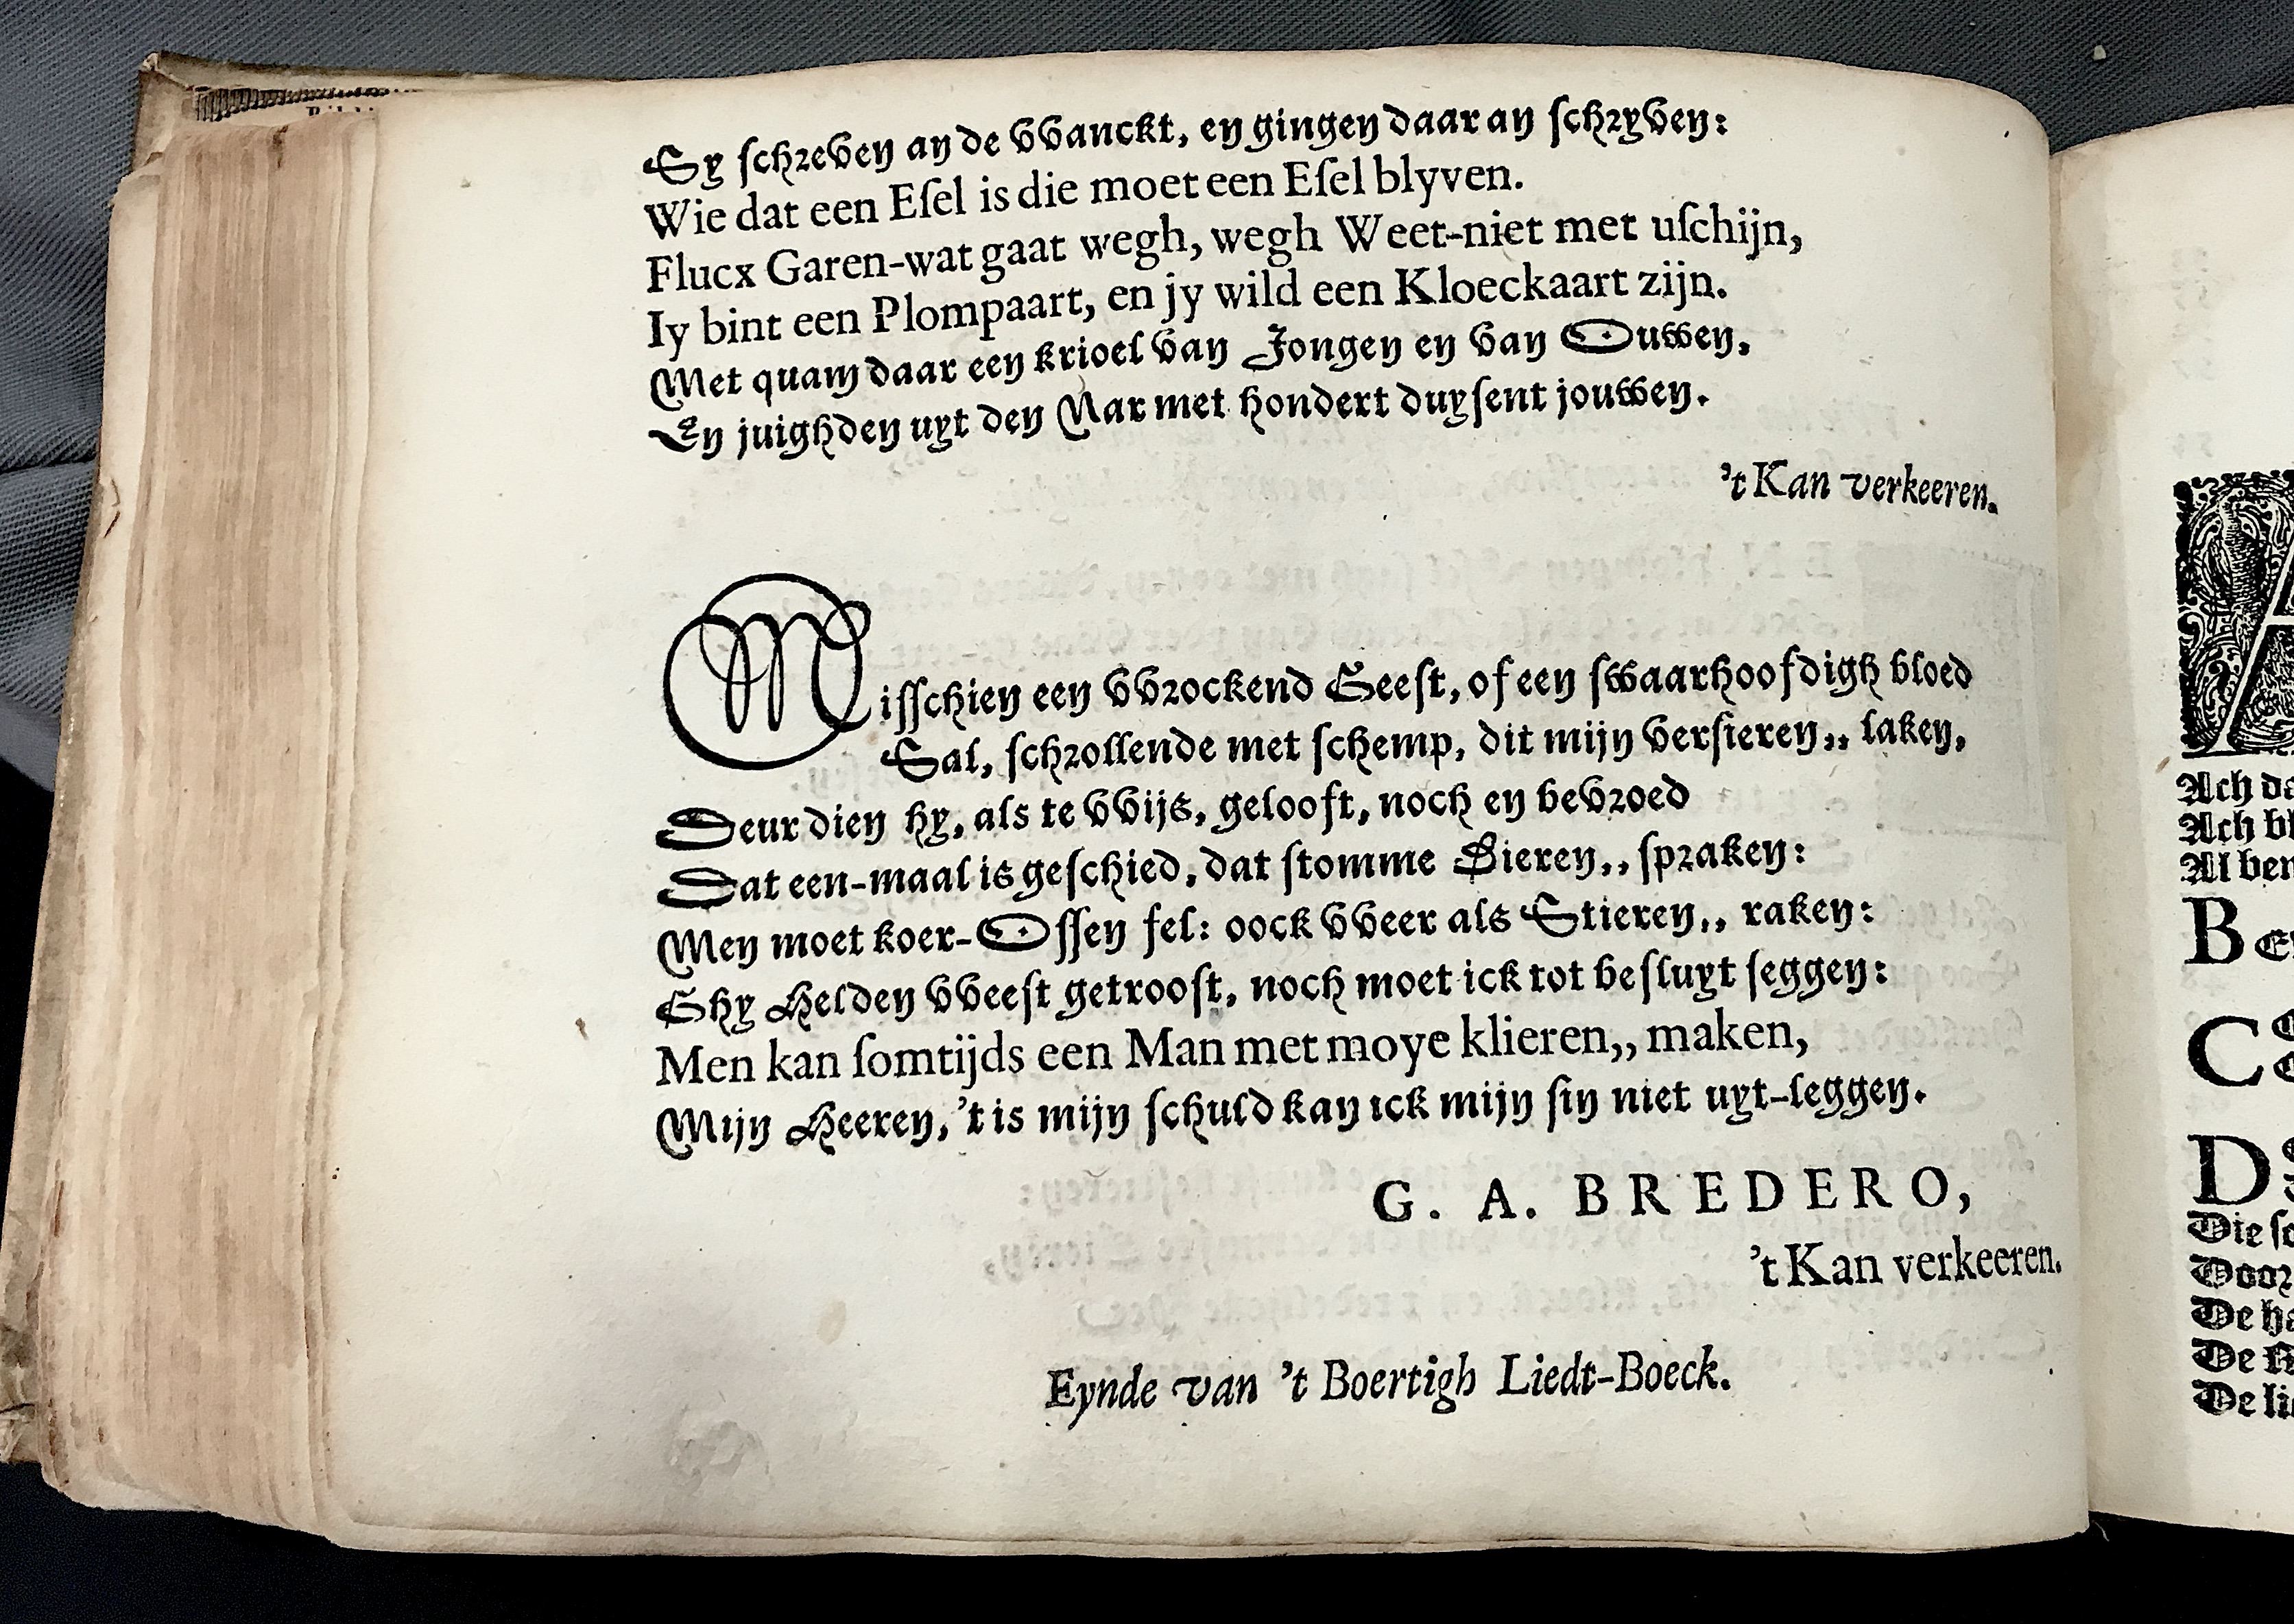 Sy ſchreven an de VVanckt, en gingen daar an ſchryven:
Wie dat een Eſel is die moet een Eſel blyven.
Flucx Garen-wat gaat wegh, wegh Weet-niet met uſchijn,
Iy bint een Plompaart, en jy wild een Kloeckaart zijn.
Met quam daar een krioel van Jongen en van Ouwen,
En juighden uyt den Nar met hondert duyſent jouwen.
't Kan verkeeren.
Miſſchien een VVrockend Geeſt, of een ſwaarhoofdigh bloed
Sal, ſchrollende met ſchemp, dit mijn verſieren,, laken,
Deur dien hy, als te VVijs, gelooft, noch en bevroed
Dat een-maal is geſchied, dat ſtomme Dieren,, ſpraken:
Men moet koer-Oſſen fel: oock VVeer als Stieren,, raken:
Ghy Helden VVeeſt getrooſt, noch moet ick tot beſluyt ſeggen:
Men kan ſomtijds een Man met moye klieren,, maken,
Mijn Heeren, 't is mijn ſchuld kan ick mijn ſin niet uyt-leggen.
G. A. BREDERO,
't Kan verkeeren.
Eynde van 't Boertigh Liedt-Boeck.
Ach
Ach
Al
B
C
D
Die
Door
De
De
De